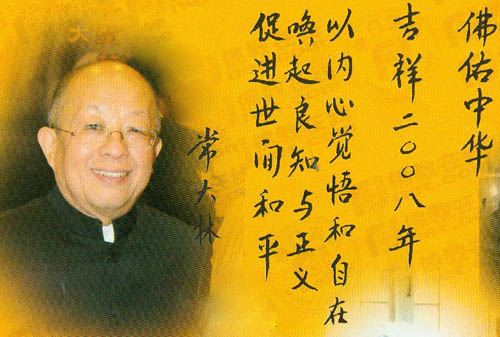 佛佑中华
吉祥二〇〇八年
以内心觉悟和自在
唤起良知与正义
促进世间和平
常大林